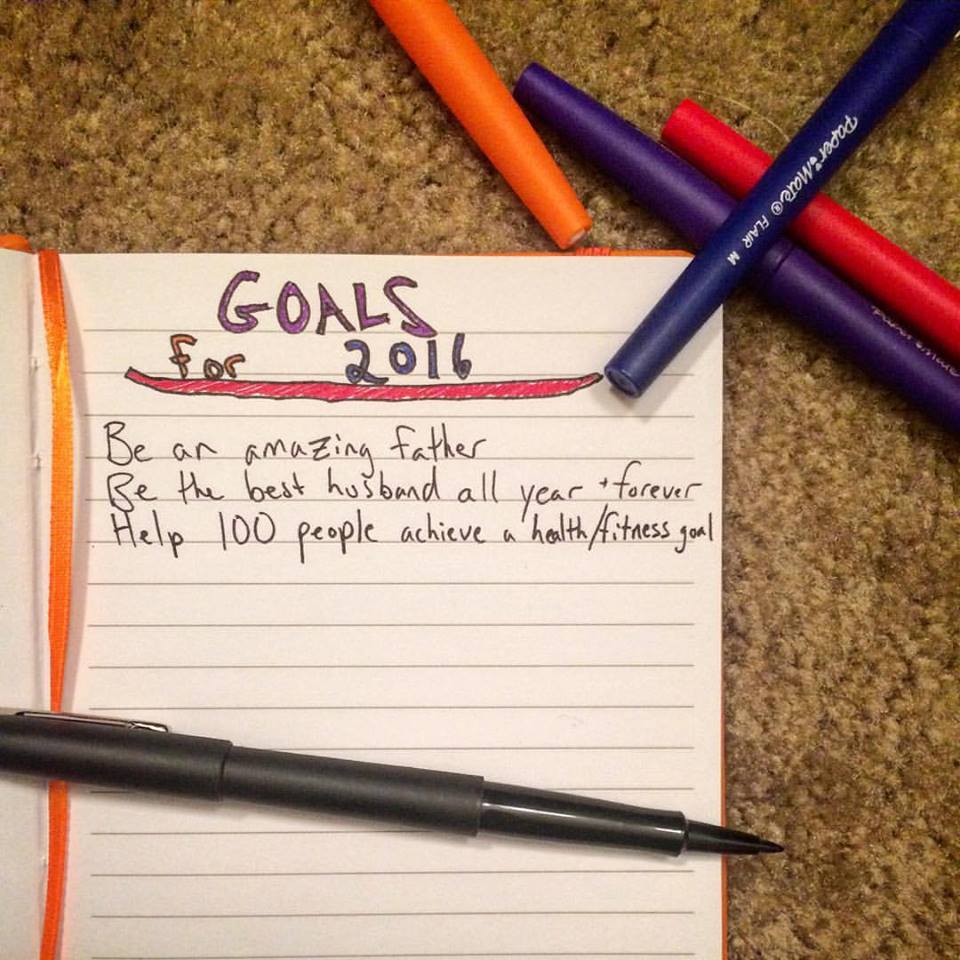 GOALS
for 2016
Be an amazing father
Be the best husband all year + forever
Help 100 people achieve a health/fitness goal
Paper Mate® FLAIR M